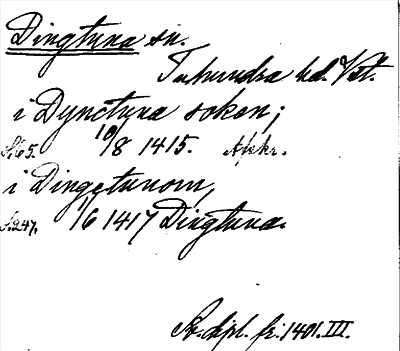 Dingtuna sn.
Tuhundra hd. Vstm.
i Dynctuna soken;
S.65. 10/8 1415. Afskr.
i Dingetunom,
S.247. 1/6 1417 Dingtuna.
Sv. dipl. fr. 1401. III.